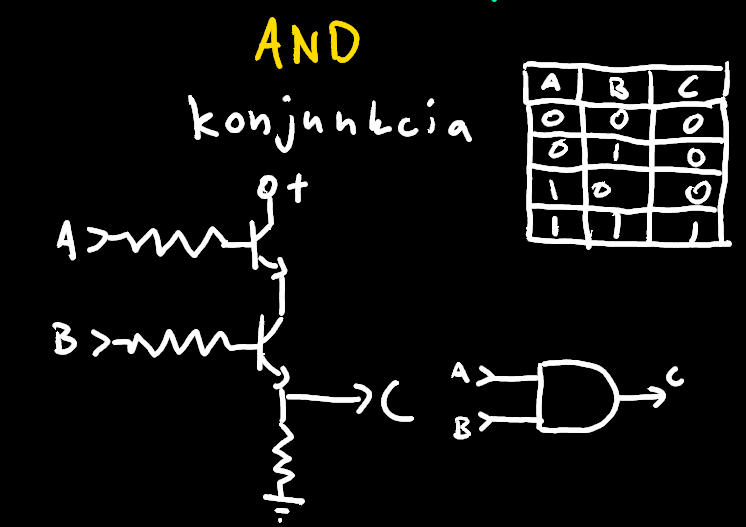 AND
konjunkcia
A B C
0 0 0
0 1 0
1 0 0
1 1 1
+
A
B
C
A
B
C